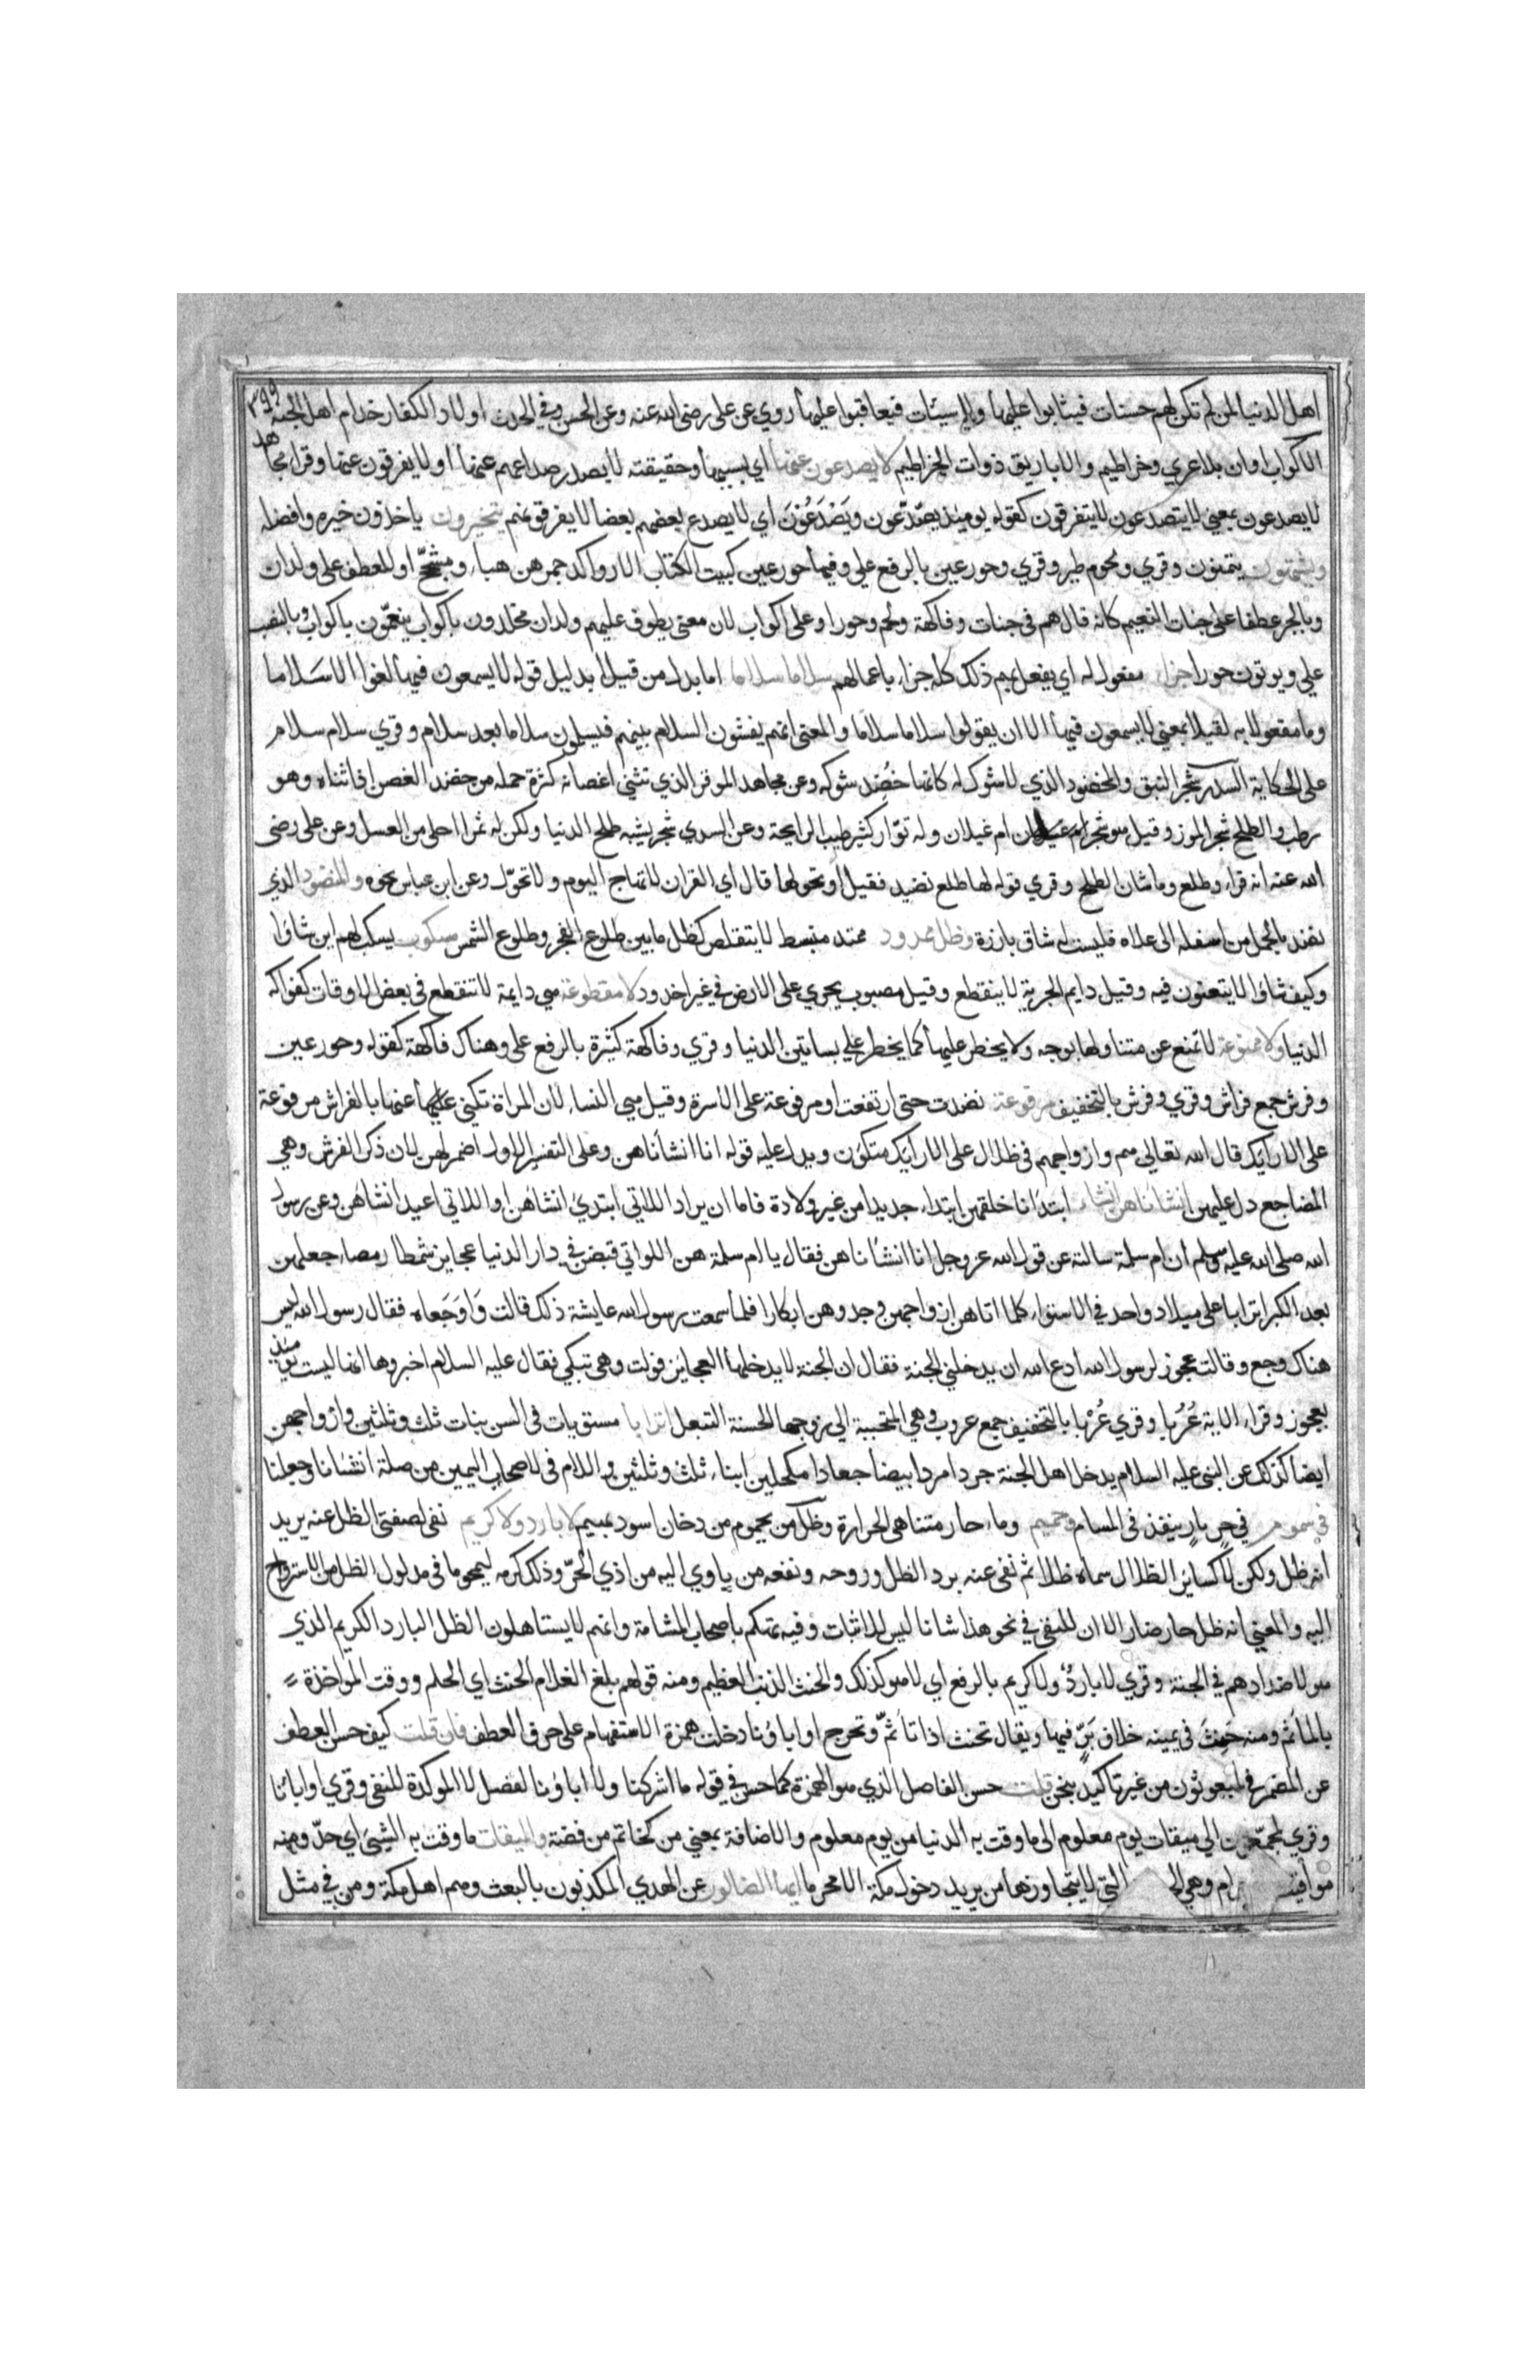 ٣٩٩
اهل الدنيا لمن لم تكن لهم حسنات فيثابوا عليها ولا سيئات فيعاقبوا عليها روي عن علي رضي الله عنه وعن الحسن وفي الحديث اولاد الكفار خدام اهل الجنة
الاكواب اوان بلا عري وخراطيم والاباريق ذوات الخراطيم لا يصدعون عنها اي بسببها وحقيقته لا يصدر صداعهم عنها او لا يفرقون عنها وقرا مجاهد
لا يصدعون بمعني لا يتصدعون لا يتفرقون كقوله يومئذ يصّدّعون ويَصْدَعُوْنَ اي لا يصدع بعضهم بعضا لا يفرقونهم يتخيرون ياخذون خيره وافضله
ويشتهون يتمنون وقري ولحوم طير وقري وحور عين بالرفع علي وفيها حور عين كبيت الكتاب الا رواكد جمرهن هباء ومشجّج او للعطف علي ولدان
وبالجر عطفا علي جنات النعيم كانه قال هم في جنات وفاكهة ولحم وحور او علي اكواب لان معني يطوف عليهم ولدان مخلدون باكواب ينعّمون باكواب وبالنصب
علي ويوتون حورا جزاء مفعول له اي يفعل بهم ذلك كله جزاء باعمالهم سلاما سلاما اما بدل من قيلا بدليل قوله لا يسمعون فيها لغوا الا سَلاما
وما مفعول به لقيلا بمعني لا يسمعون فيها الا ان يقولوا سلاما سلاما والمعني انهم يفشون السلام بينهم فيسلمون سلاما بعد سلام وقري سلام سلام
علي الحكاية السدر شجر النبق والمخضود الذي لا شوك له كانما خُضِد شوكه وعن مجاهد الموقر الذي تثني اغصانه كثرة حمله من خضد الغصن اذا ثناه وهو
رطب والطلح شجر الموز وقيل هو شجر ام غيلان وله نوّار كثير طيب الرايحة وعن السدي شجر يشبه طلح الدنيا ولكن له ثمر احلي من العسل وعن علي رضي
الله عنه انه قراء وطلع وما شان الطلح وقري قوله لها طلع نضيد فقيل او نحولها قال اي القران لا تهاج اليوم ولا تحوّل وعن ابن عباس نحوه والمنضود الذي
نضد بالحمل من اسفله الي علاه فليست له ساق بارزة وظل ممدود ممتد منبسط لا يتقلص كظل ما بين طلوع الفجر وطلوع الشمس مسكوب يسكب لهم اين شاؤا
وكيف شاؤا لا يتعنون فيه وقيل دايم الجرية لا ينقطع وقيل مصبوب يجري علي الارض في غير اخدود لا مقطوعة هي دايمة لا تنقطع في بعض الاوقات كفواكه
الدنيا ولا ممنوعة لا تمنع عن متناولها بوجه ولا يحظر عليها كما يحظر علي بساتين الدنيا وقري وفاكهة كثيرة بالرفع علي وهناك فاكهة كقوله وحور عين
وفرش جمع فراش وقري وفرش بالتخفيف مرفوعة نضدت حتي ارتفعت او مرفوعة علي الاسرة وقيل هي النساء لان المراة تكني عنها بالفراش مرفوعة
علي الارايك قال الله تعالي هم وازواجهم في ظلال علي الارايك متكؤن ويدل عليه قوله انا انشأناهن وعلي التفسير الاول اضمر لهن لان ذكر الفرش وهي
المضاجع دل عليهن انشأناهن انشاء ابتدأنا خلقهن ابتداء جديدا من غير ولادة فاما ان يراد اللاتي ابتدي انشاؤهن او اللاتي اعيد انشاؤهن وعن رسول
الله صلي الله عليه وسلم ان ام سلمة سالته عن قول الله عز وجل انا انشأناهن فقال يا ام سلمة هن اللواتي قبضن في دار الدنيا عجايز شمطا رمصا جعلهن
بعد الكبر اترابا علي ميلاد واحد في الاستواء كلما اتاهن ازواجهن وجدوهن ابكارا فلما سمعت رسول الله عايشة ذلك قالت وَاوَجَعاه فقال رسول الله ليس
هناك وجع وقالت عجوز لرسول الله ادع الله ان يدخلني الجنة فقال ان الجنة لا يدخلها العجايز فولت وهي تبكي فقال عليه السلام اخبروها انها ليست يومئذ
بعجوز وقراء الاية عُرُبا وقري عُرْبا بالتخفيف جمع عروب وهي المتحببة الي زوجها الحسنة التبعل اترابا مستويات في السن بنات ثلث وثلثين وازواجهن
ايضا كذلك عن النبي عليه السلام يدخل اهل الجنة جردا مردا بيضا جعادا مكحلين ابناء ثلث وثلثين واللام في لاصحاب اليمين من صلة انشانا وجعلنا
في سموم في حر نار ينفذ في المسام وحميم وماء حار متناهي الحرارة وظل من يحموم من دخان اسود بهيم لا بارد ولا كريم نفي لصفتي الظل عنه يريد
انه ظل ولكن لا كساير الظلال سماه ظلا ثم نفي عنه برد الظل وروحه ونفعه من ياوي اليه من اذي الحرّ وذلك كرمه ليمحو ما في مدلول الظل من الاسترواح
اليه والمعني انه ظل حار ضار الا ان للنفي في نحو هذا شانا ليس للاثبات وفيه تهكم باصحاب المشامة وانهم لا يستاهلون الظل البارد الكريم الذي
هو لاضدادهم في الجنة وقري لا باردٌ ولا كريم بالرفع اي لا هو كذلك والحنث الذنب العظيم ومنه قولهم بلغ الغلام الحنث اي الحلم ووقت المواخذة
بالمآثم ومنه حَنِثَ في يمينه خلاف بَرّ فيها ويقال تحنث اذا تأثّم وتحرج اواباؤنا دخلت همزة الاستفهام علي حرف العطف فان قلت كيف حسن العطف
عن المضمر في لمبعوثون من غير تاكيد بنحن قلت حسن الفاصل الذي هو الهمزة كما حسن في قوله ما اشركنا ولا اباؤنا لفصل لا الموكدة للنفي وقري اواباؤنا
وقري لمجمّعون الي ميقات يوم معلوم الي ما وقت به الدنيا من يوم معلوم والاضافة بمعني من كخاتم من فضة والميقات ما وقت به الشيئ اي حدّ ومنه
مواقيت وهي التي لا يتجاوزها من يريد دخول مكة الا محرما ايها الضالون عن الهدي المكذبون بالبعث وهم اهل مكة ومن في مثل